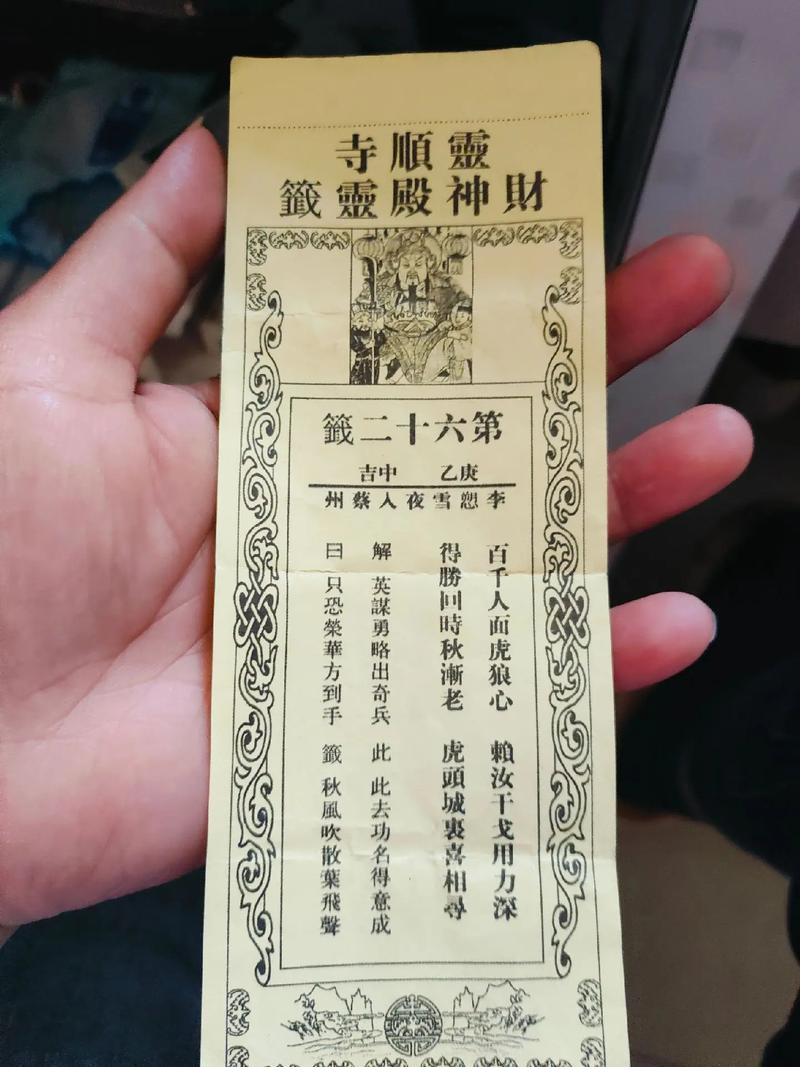 靈順寺
財神殿靈籤
第六十二籤
庚乙 中吉
李愬雪夜入蔡州
百千人面虎狼心 賴汝干戈用力深
得勝回時秋漸老 虎頭城裏喜相尋
解 英謀勇略出奇兵 此 此去功名得意成
曰 只恐榮華方到手 籤 秋風吹散葉飛聲